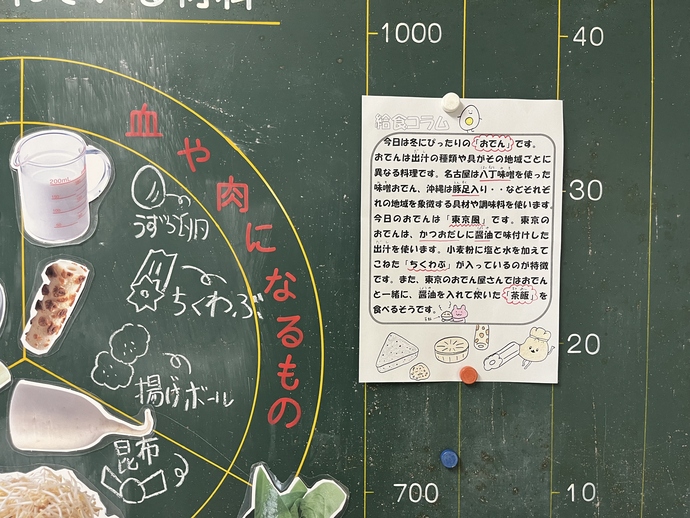 血や肉になるもの
200mL
うずら卵
ちくわぶ
揚げボール
昆布
1000
700
40
30
20
10
給食コラム
今日は冬にぴったりの「おでん」です。
おでんは出汁の種類や具がその地域ごとに
異なる料理です。名古屋は八丁味噌を使った
味噌おでん、沖縄は豚足入り・・などそれぞ
れの地域を象徴する具材や調味料を使います。
今日のおでんは「東京風」です。東京の
おでんは、かつおだしに醤油で味付けした
出汁を使います。小麦粉に塩と水を加えて
こねた「ちくわぶ」が入っているのが特徴
です。また、東京のおでん屋さんではおでん
と一緒に、醤油を入れて炊いた「茶飯」を
食べるそうです。